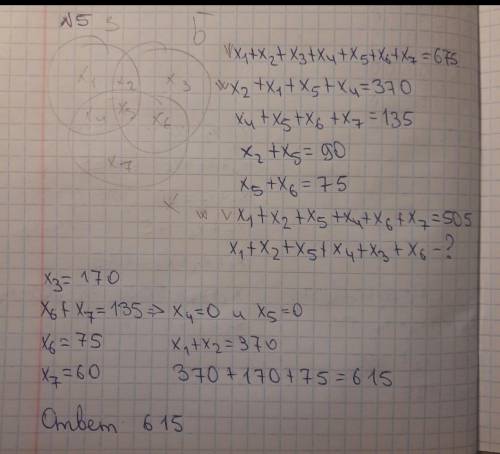 №5 Б
x₁ x₂ x₃
x₄ x₅ x₆
x₇
x₁+x₂+x₃+x₄+x₅+x₆+x₇=675
x₂+x₁+x₅+x₄=370
x₄+x₅+x₆+x₇=135
x₂+x₅=90
x₅+x₆=75
x₁+x₂+x₅+x₄+x₆+x₇=505
x₁+x₂+x₅+x₄+x₃+x₆-?
x₃=170
x₆+x₇=135⇒ x₄=0 и x₅=0
x₆=75 x₁+x₂=370
x₇=60 370+170+75=615
Ответ 615